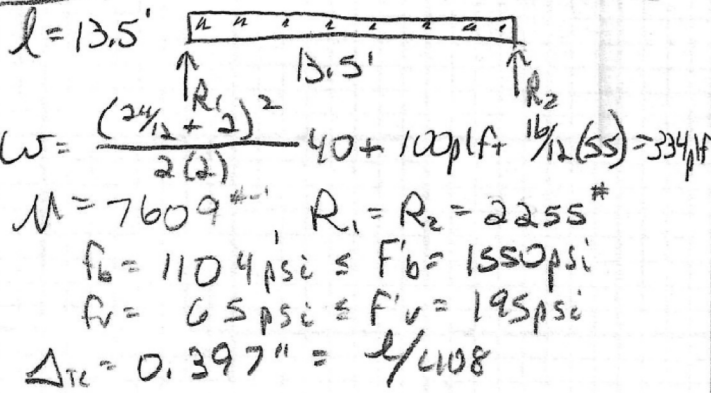 l = 13.5'
13.5'
R₁ R₂
W = (24/12 + 2)² / 2(2) 40 + 100plf + 16/12(55) = 334plf
M = 7609#-', R₁ = R₂ = 2255#
fb = 1104psi ≤ F'b = 1550psi
fv = 65psi ≤ F'v = 195psi
ΔTL = 0.397" = l/408